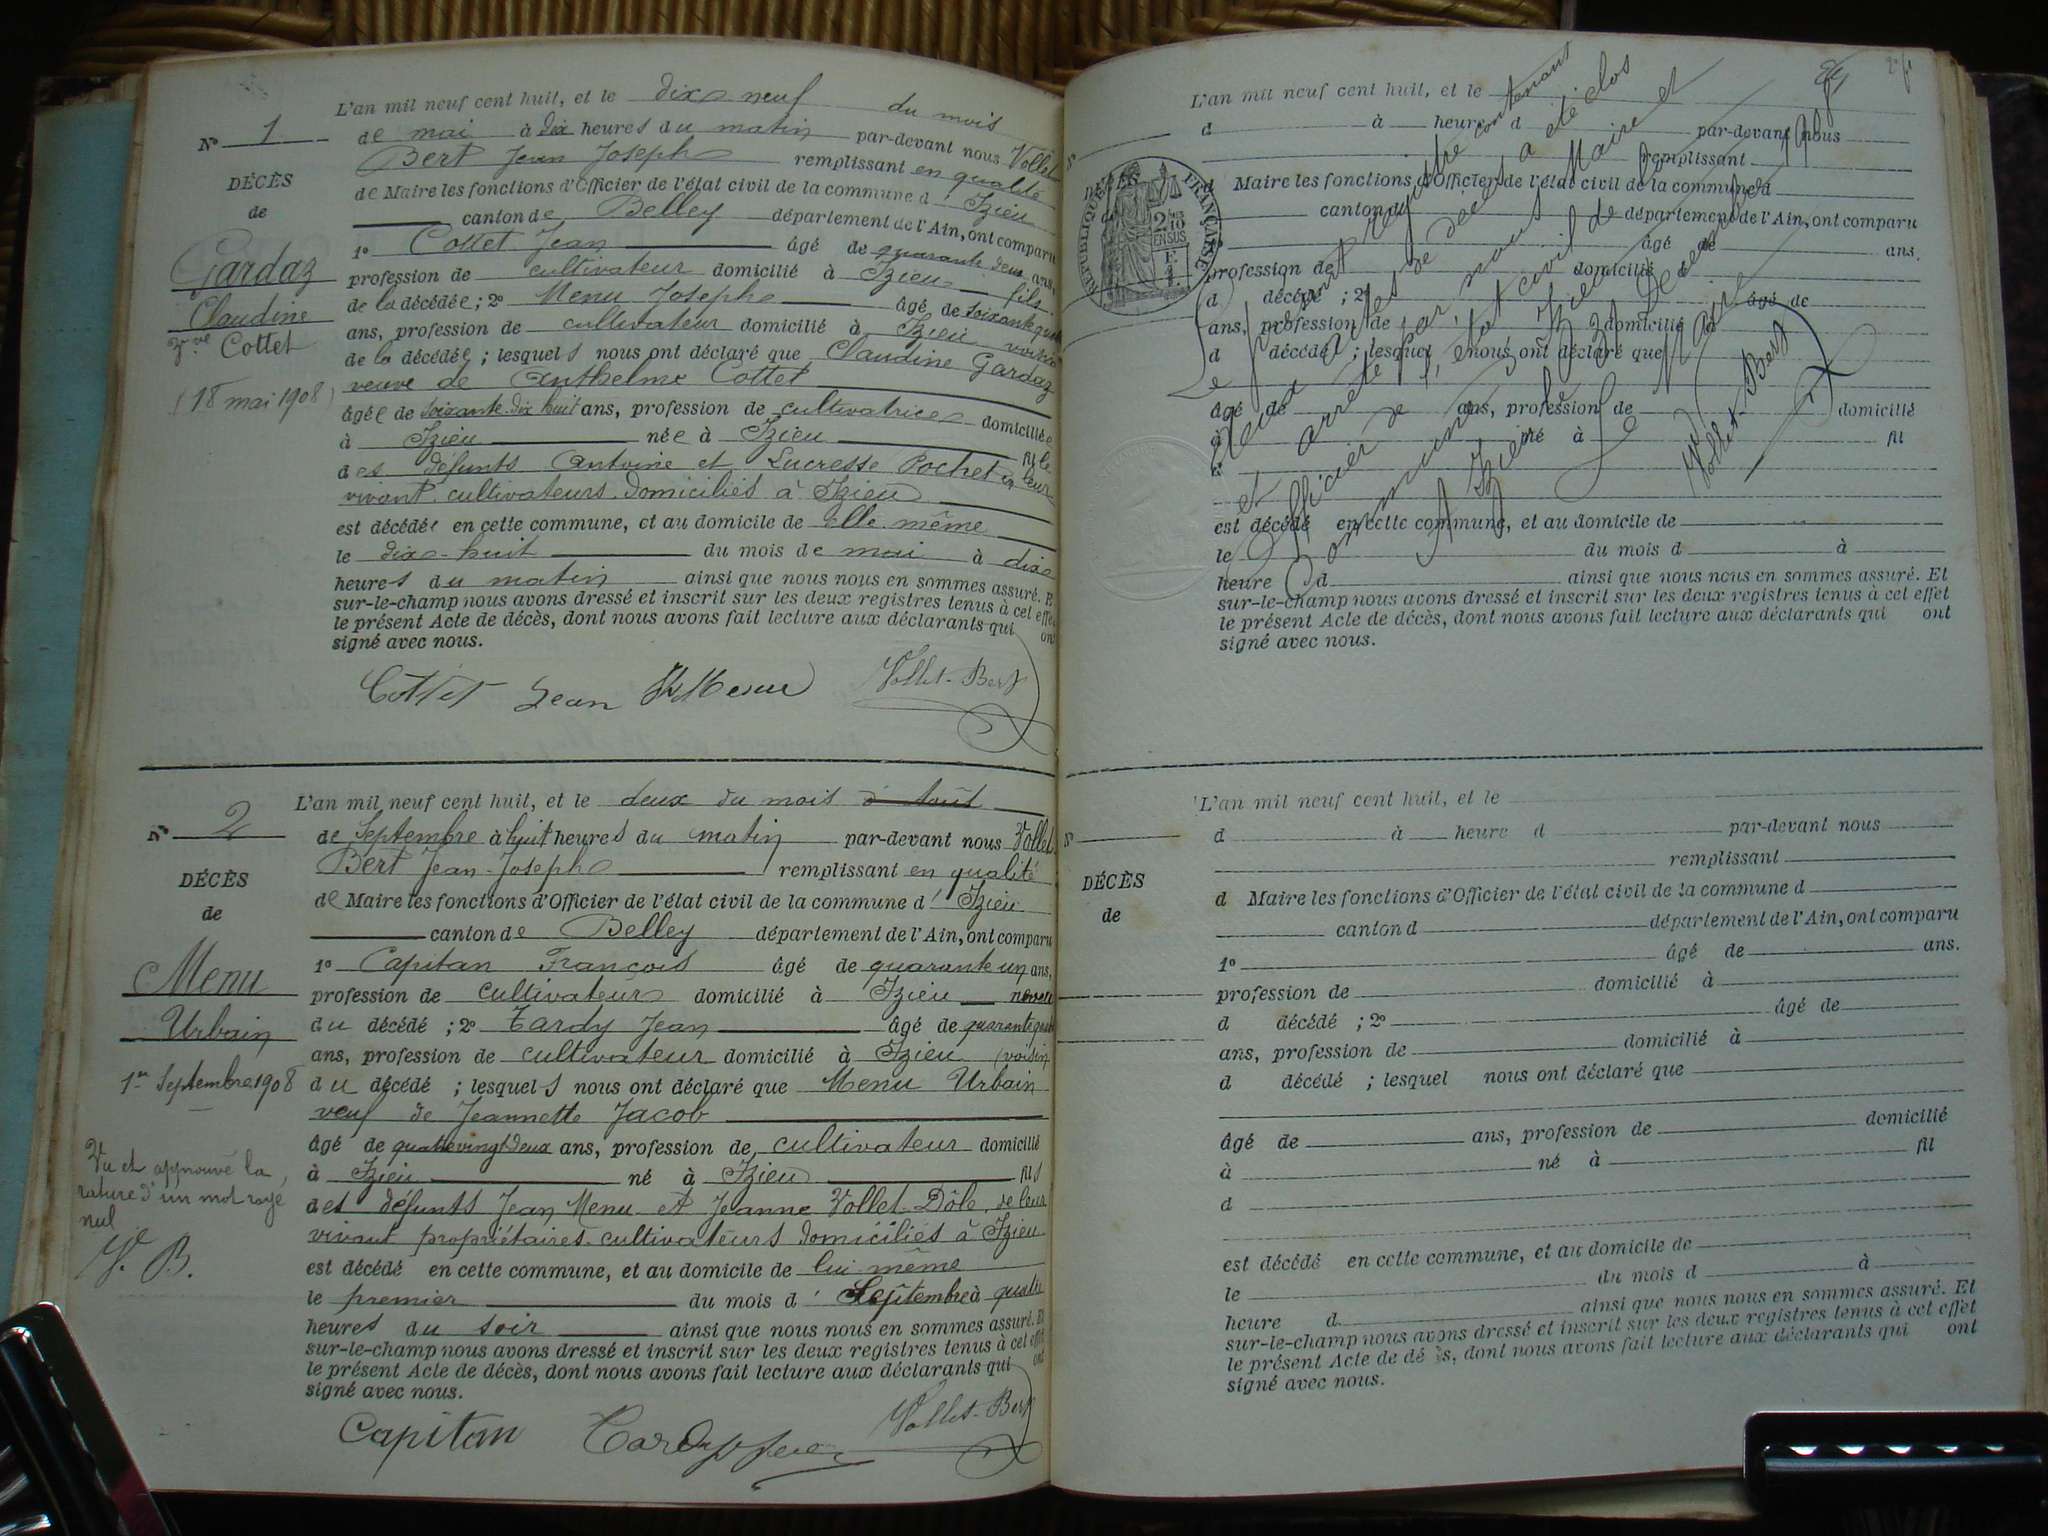 L'an mil neuf cent huit, et le dix neuf du mois
No 1 de mai à dix heures du matin par-devant nous Vollet
Bert Jean Joseph remplissant en qualité
DÉCÈS de Maire les fonctions d'Officier de l'état civil de la commune d'Izieu
de canton de Belley département de l'Ain, ont comparu
1º Cottet Jean âgé de quarante deux ans,
Gardaz profession de cultivateur domicilié à Izieu fils
Claudine de la décédée ; 2º Menu Joseph âgé de soixante quatre
Vve Cottet ans, profession de cultivateur domicilié à Izieu voisin
de la décédée ; lesquels nous ont déclaré que Claudine Gardaz
(18 mai 1908) veuve de Anthelme Cottet
âgée de soixante dix huit ans, profession de cultivatrice domiciliée
à Izieu née à Izieu fille
des défunts Antoine et Lucresse Pochet en leur
vivant cultivateurs domiciliés à Izieu
est décédée en cette commune, et au domicile de elle même
le dix-huit du mois de mai à dix
heures du matin ainsi que nous nous en sommes assuré. Et
sur-le-champ nous avons dressé et inscrit sur les deux registres tenus à cet effet
le présent Acte de décès, dont nous avons fait lecture aux déclarants qui ont
signé avec nous.
Cottet Jean Menu Vollet-Bert
L'an mil neuf cent huit, et le deux du mois d'Août
No 2 de Septembre à huit heures du matin par-devant nous Vollet
Bert Jean-Joseph remplissant en qualité
DÉCÈS de Maire les fonctions d'Officier de l'état civil de la commune d'Izieu
de canton de Belley département de l'Ain, ont comparu
1º Capitan François âgé de quarante un ans,
Menu profession de cultivateur domicilié à Izieu neveu
Urbain du décédé ; 2º Tardy Jean âgé de quarante quatre
ans, profession de cultivateur domicilié à Izieu voisin
1er Septembre 1908 du décédé ; lesquels nous ont déclaré que Menu Urbain
veuf de Jeannette Jacob
âgé de quatre vingt deux ans, profession de cultivateur domicilié
à Izieu né à Izieu fils
des défunts Jean Menu et Jeanne Vollet Dôle, de leur
vivant propriétaires-cultivateurs domiciliés à Izieu
est décédé en cette commune, et au domicile de lui même
le premier du mois d' Septembre à quatre
heures du soir ainsi que nous nous en sommes assuré. Et
sur-le-champ nous avons dressé et inscrit sur les deux registres tenus à cet effet
le présent Acte de décès, dont nous avons fait lecture aux déclarants qui ont
signé avec nous.
Vu et approuvé la
rature d'un mot rayé
nul
V. B.
Capitan Tardy Jean Vollet-Bert
L'an mil neuf cent huit, et le
d à heure d par-devant nous
remplissant
d Maire les fonctions d'Officier de l'état civil de la commune d
canton d département de l'Ain, ont comparu
âgé de ans,
profession de domicilié
d décédé ; 2º âgé de
ans, profession de domicilié à
d décédé ; lesquel nous ont déclaré que
âgé de ans, profession de domicilié
né à fil
est décédé en cette commune, et au domicile de
le du mois d à
heure d ainsi que nous nous en sommes assuré. Et
sur-le-champ nous avons dressé et inscrit sur les deux registres tenus à cet effet
le présent Acte de décès, dont nous avons fait lecture aux déclarants qui ont
signé avec nous.
RÉPUBLIQUE FRANÇAISE
Le présent registre contenant
deux actes de décès a été clos
et arrêté par nous Maire et
Officier de l'état civil de la
Commune d'Izieu
A Izieu le 31 Décembre 1908
Le Maire
Vollet-Bert
L'an mil neuf cent huit, et le
No d à heure d par-devant nous
remplissant
DÉCÈS d Maire les fonctions d'Officier de l'état civil de la commune d
de canton d département de l'Ain, ont comparu
1º âgé de ans.
profession de domicilié à
d décédé ; 2º âgé de
ans, profession de domicilié à
d décédé ; lesquel nous ont déclaré que
âgé de ans, profession de domicilié
à né à fil
d
est décédé en cette commune, et au domicile de
le du mois d à
heure d ainsi que nous nous en sommes assuré. Et
sur-le-champ nous avons dressé et inscrit sur les deux registres tenus à cet effet
le présent Acte de dé s, dont nous avons fait lecture aux déclarants qui ont
signé avec nous.